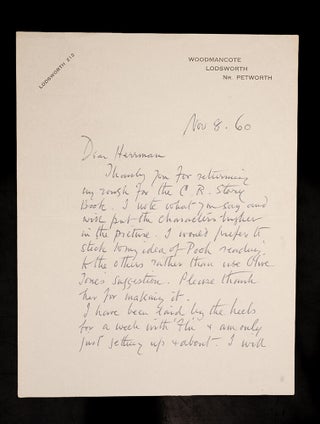 LODSWORTH 212
WOODMANCOTE
LODSWORTH
NR PETWORTH
Nov 8. 60
Dear Herrman
Thank you for returning
my rough for the C. R. Story
Book. I note what you say and
will put the characters higher
in the picture. I would prefer to
stick to my idea of Pooh reading
to the others rather than use Olive
Jones' suggestion. Please thank
her for making it.
I have been laid by the heels
for a week with 'Flu' & am only
just getting up & about. I will